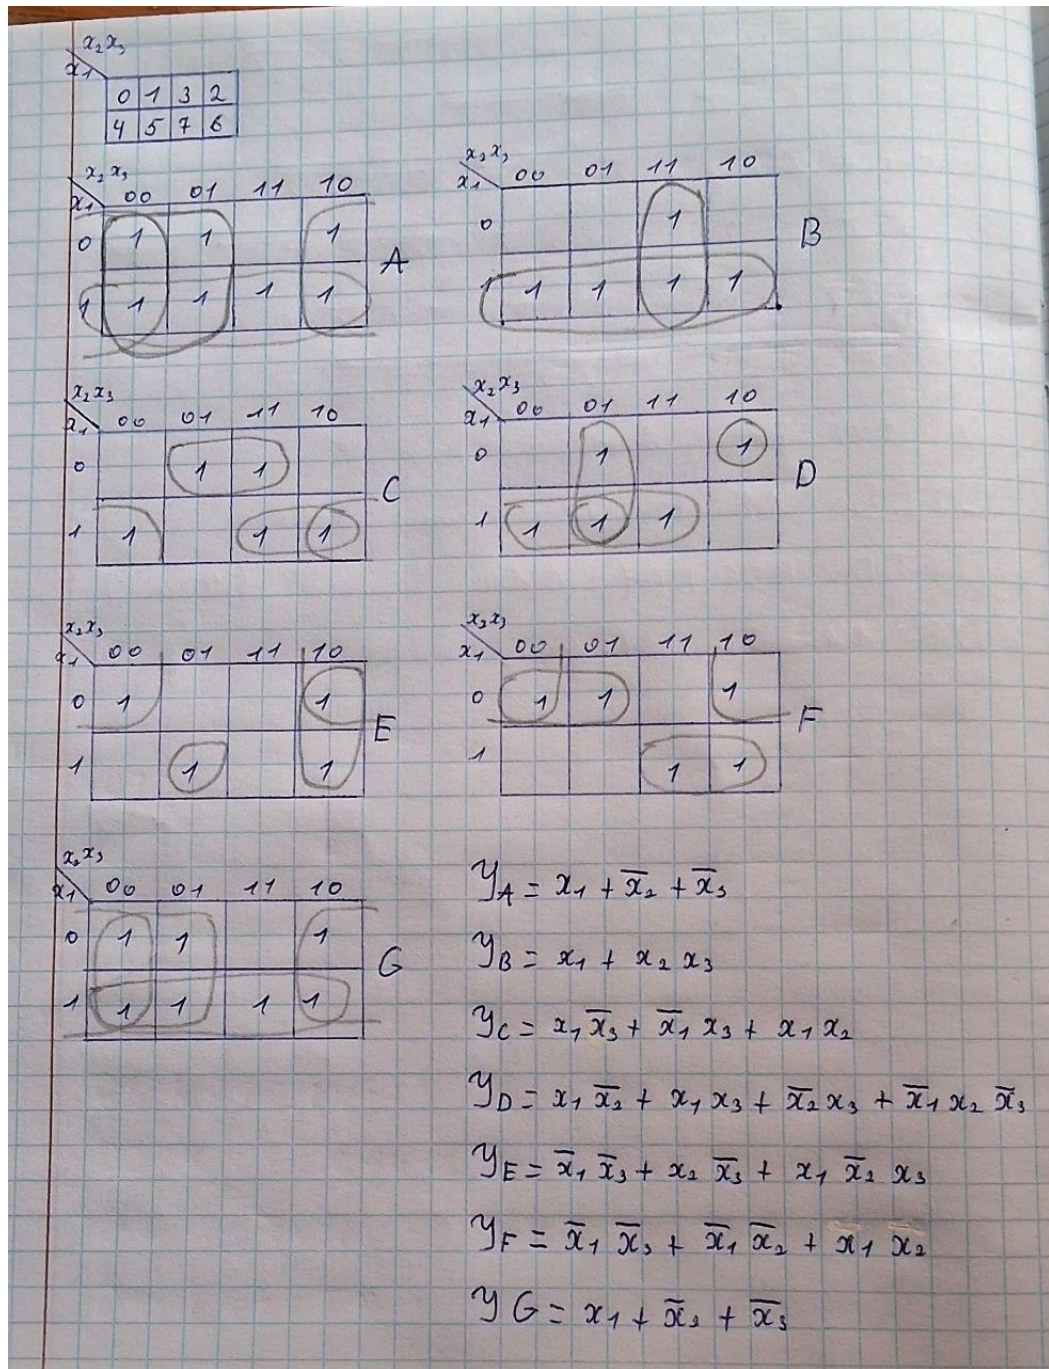 x₂x₃
x₁
0 1 3 2
4 5 7 6
x₂x₃
x₁ 00 01 11 10
0 1 1 1
1 1 1 1 1
A
x₂x₃
x₁ 00 01 11 10
0 1
1 1 1 1 1
B
x₂x₃
x₁ 00 01 11 10
0 1 1
1 1 1 1
C
x₂x₃
x₁ 00 01 11 10
0 1 1
1 1 1 1
D
x₂x₃
x₁ 00 01 11 10
0 1 1
1 1 1
E
x₂x₃
x₁ 00 01 11 10
0 1 1 1
1 1 1
F
x₂x₃
x₁ 00 01 11 10
0 1 1 1
1 1 1 1 1
G
y_A = x₁ + x̅₂ + x̅₃
y_B = x₁ + x₂ x₃
y_C = x₁ x̅₃ + x̅₁ x₃ + x₁ x₂
y_D = x₁ x̅₂ + x₁ x₃ + x̅₂ x₃ + x̅₁ x₂ x̅₃
y_E = x̅₁ x̅₃ + x₂ x̅₃ + x₁ x̅₂ x₃
y_F = x̅₁ x̅₃ + x̅₁ x̅₂ + x₁ x₂
y G = x₁ + x̅₂ + x̅₃